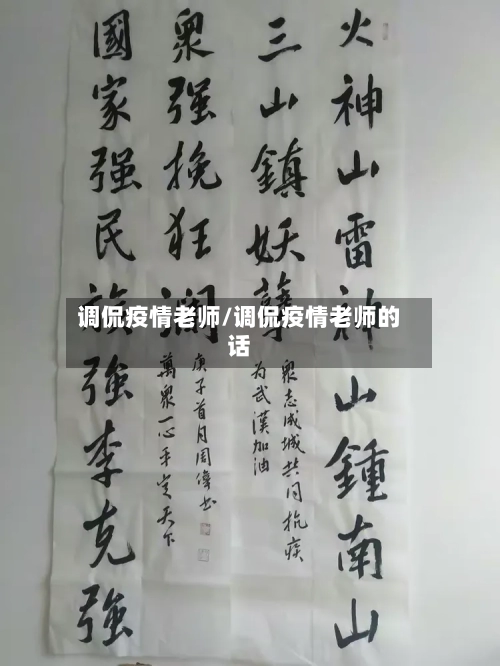 火神山雷神山鍾南山
三山鎮妖孽
衆志成城共同抗疫
为武漢加油
衆强挽狂瀾
庚子首月周书
萬衆一心平定天下
國家强民族強李克強
调侃疫情老师/调侃疫情老师的
话